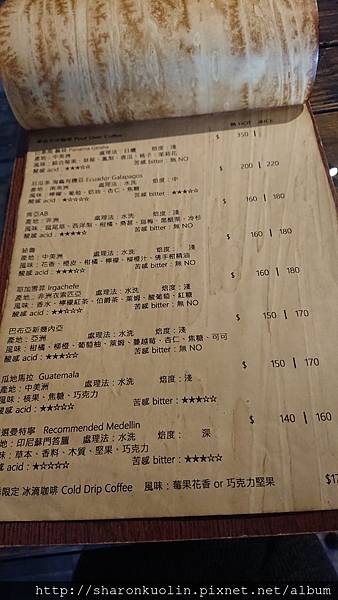 Pour Over Coffee
熱 HOT / 冰ICE
Panama Geisha $ 350 |
產地：中美洲 處理法：日曬 焙度：淺
酸感 acid：★★★☆☆ 苦感 bitter：無 NO
Ecuador Galapagos $ 200 | 220
產地：南美洲 處理法：水洗 焙度：中
酸感 acid：★☆☆☆☆ 苦感 bitter：★★☆☆☆
肯亞AB $ 160 | 180
產地：非洲 處理法：水洗 焙度：淺
酸感 acid：★★★☆☆ 苦感 bitter：無 NO
秘魯 $ 160 | 180
產地：中美洲 處理法：水洗 焙度：淺
風味：花香、橙皮、柑橘、檸檬、柳橙汁、佛手柑精油
酸感 acid：★★★☆☆ 苦感 bitter：無 NO
耶加雪菲 Irgachefe $ 160 | 180
產地：非洲衣索匹亞 處理法：水洗 焙度：淺
風味：香水、檸檬紅茶、伯爵茶、萊姆、酸葡萄、紅糖
酸感 acid：★★★☆☆ 苦感 bitter：無 NO
巴布亞新幾內亞 $ 150 | 170
產地：亞洲 處理法：水洗 焙度：淺
風味：柑橘、柳橙、葡萄柚、萊姆、蔓越莓、杏仁、焦糖、可可
酸感 acid：★★★☆☆ 苦感 bitter：無 NO
瓜地馬拉 Guatemala $ 150 | 170
產地：中美洲 處理法：水洗 焙度：中
風味：核果、焦糖、巧克力
酸感 acid：★★☆☆☆ 苦感 bitter：★★★☆☆
選曼特寧 Recommended Medellin $ 140 | 160
地：印尼蘇門答臘 處理法：水洗 焙度： 深
味：草本、香料、木質、堅果、巧克力
感 acid：★☆☆☆☆ 苦感 bitter：★★★☆☆
限定 冰滴咖啡 Cold Drip Coffee 風味：莓果花香 or 巧克力堅果 $17
http://sharonkuolin.pixnet.net/album